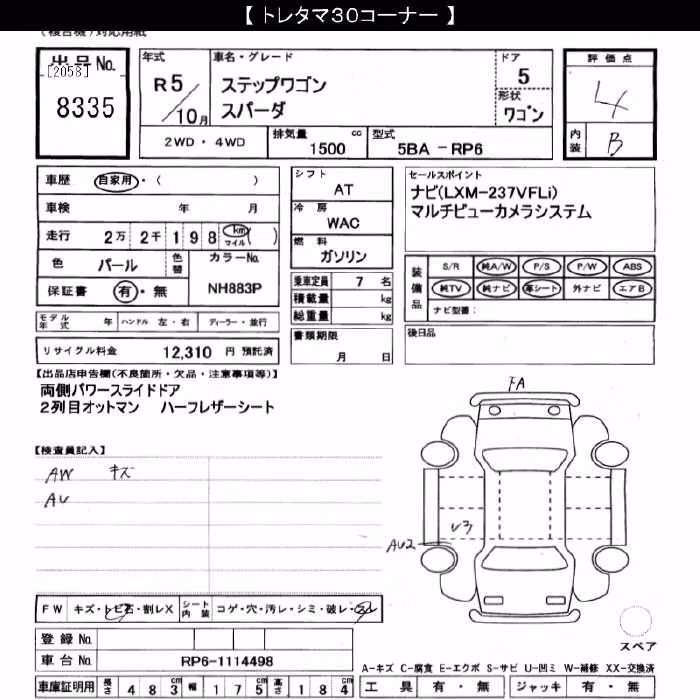 【 トレタマ30コーナー 】
(複合機)対応用紙
出品No.
[2058]
8335
年式
R5/10月
車名・グレード
ステップワゴン
スパーダ
ドア
5
形状
ワゴン
評価点
4
内装
B
2WD・4WD
排気量
1500 cc
型式
5BA -RP6
車歴 自家用・( )
車検 年 月
走行 2万 2千 1 9 8 km マイル ( )
色 パール 色替
カラーNo.
NH883P
保証書 有・無
モデル年式 年 ハンドル 左・右 ディーラー・並行
リサイクル料金 12,310 円 預託済
シフト
AT
冷房
WAC
燃料
ガソリン
乗車定員 7 名
積載量 kg
総重量 kg
書類期限
月 日
セールスポイント
ナビ(LXM-237VFLi)
マルチビューカメラシステム
装備品
S/R 純A/W P/S P/W ABS
純TV 純ナビ 革シート 外ナビ エアB
ナビ型番:
後日品
【出品店申告欄(不良箇所・欠品・注意事項等)】
両側パワースライドドア
2列目オットマン ハーフレザーシート
【検査員記入】
AW キズ
AU
FA
U3
AU2
スペア
FW キズ・トビ石・割レX シート内装 コゲ・穴・汚レ・シミ・破レ・スレ
登録No.
車台No. RP6-1114498
車庫証明用 長さ 4 8 3 cm 幅 1 7 5 cm 高さ 1 8 4 cm
A-キズ C-腐食 E-エクボ S-サビ U-凹ミ W-補修 XX-交換済
工具 有・無 ジャッキ 有・無